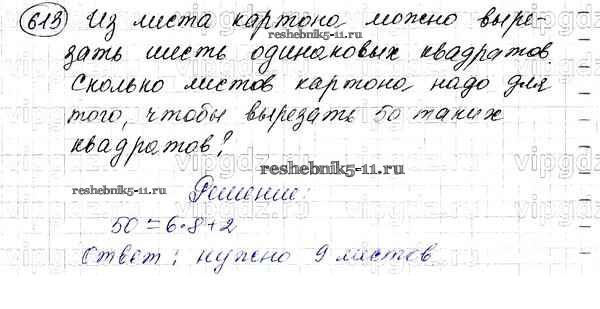 613 Из листа картона можно выре-
зать шесть одинаковых квадратов.
Сколько листов картона надо для
того, чтобы вырезать 50 таких
квадратов?
reshebnik5-11.ru
reshebnik5-11.ru
Решение:
50 = 6·8+2
Ответ: нужно 9 листов